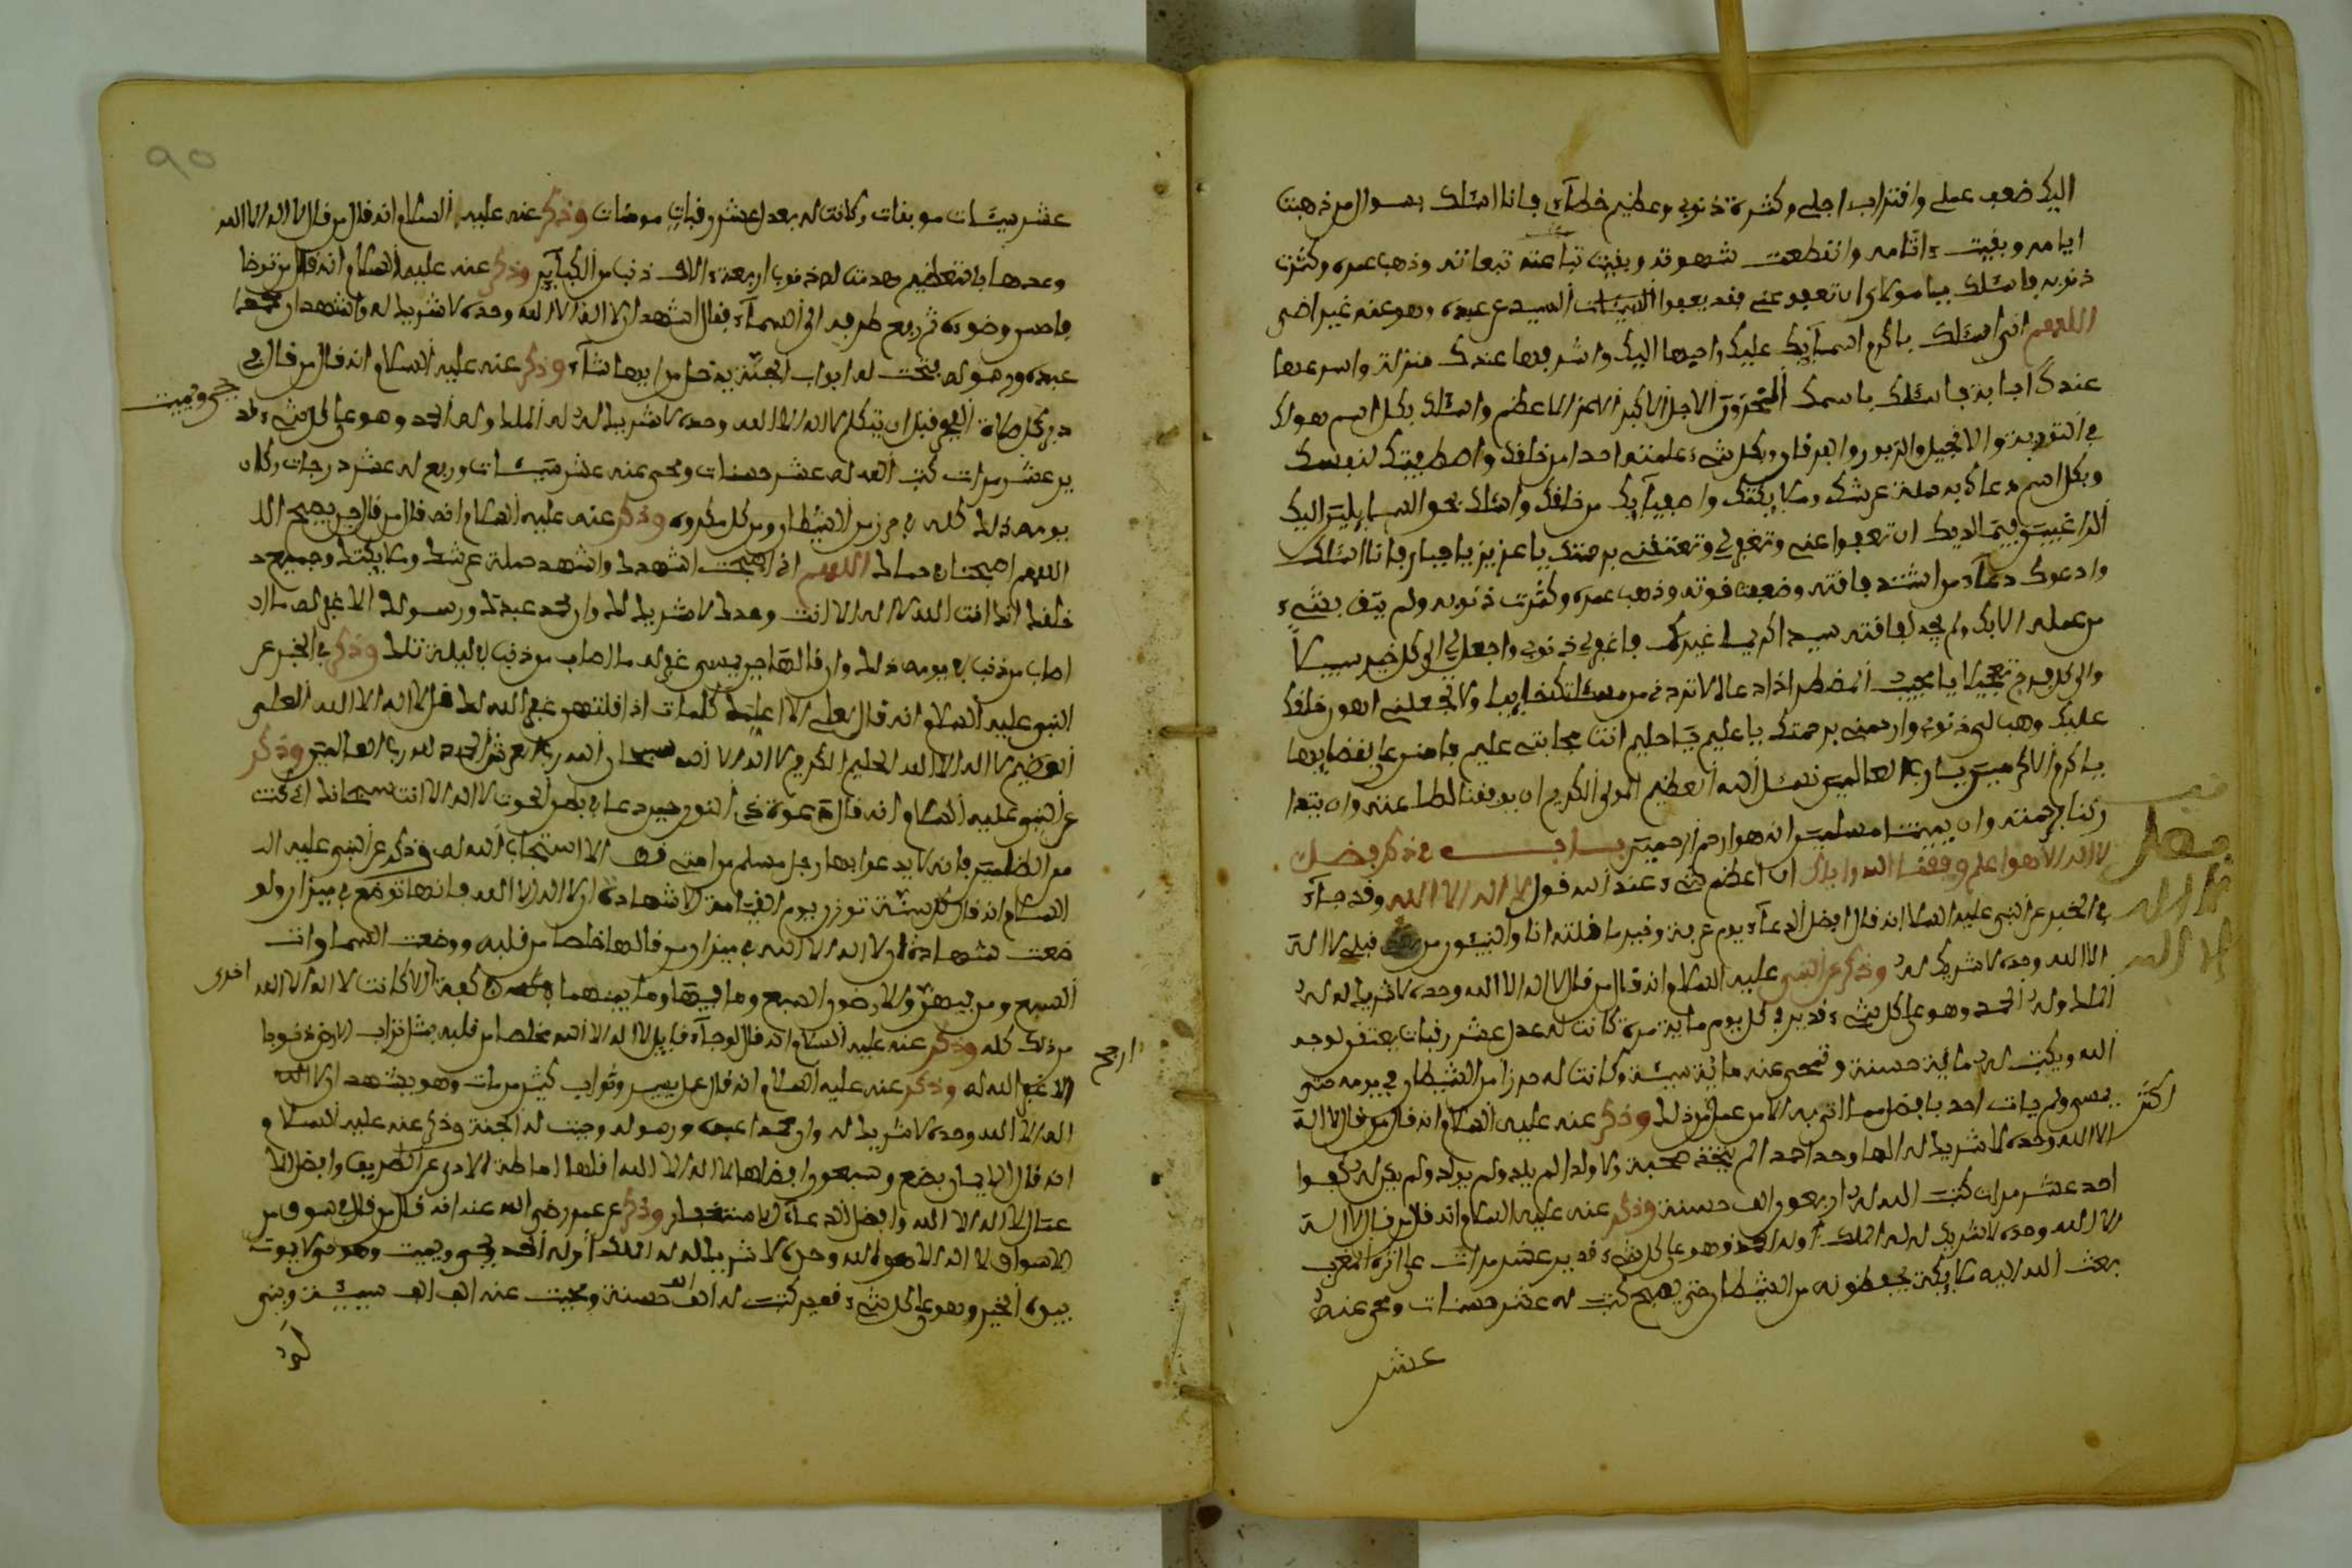 اليك ضعف عملي وافتراب اجلي وكثرة ذنوبي وعظيم خطآءي فانا اسئلك بسوال من ذهبت
ايامه وبقيت ءاثامه وانقطعت شهوته وبقيت تباعته تبعاته وذهب عمره وكثرت
ذنوبه فاسئلك يا مولاي ان تعفو عني فقد يعفوا السيد عن عبده وهو عنه غير راضي
اللهم اني اسئلك باكرم اسمآيك عليك واحبها اليك واشرفها عندك منزلة واسرعها
عندك اجابة فاسئلك باسمك المخزون الاجل الاكبر الاعز الاعظم واسئلك بكل اسم هو لك
في التورية والانجيل والزبور والفرقان وبكل شيء علمته احدا من خلقك واصطفيتك لنفسك
وبكل اسم دعاك به حملة عرشك وملايكتك واصفيآيك من خلقك واسئلك بحق السايلين اليك
الراغبين فيما لديك ان تعفوا عني وتغفر لي وتعتقني برحمتك يا عزيز يا جبار فانا اسئلك
وادعوك دعآء من اشتدت فاقته وضعفت قوته وذهب عمره وكثرت ذنوبه ولم يثق بشيء
من عمله الا بك ولم يجد لفاقته سيدا كريما غيرك فاغفر لي ذنوبي واجعل لي الى كل خير سبيلا
يا مجيب المضطر اذا دعا لا تردني من مسئلتك خايبا ولا تجعلني اهون خلقك
عليك وهب لي ذنوبي وارحمني برحمتك يا عليم يا حليم انت
يا اكرم الاكرمين يا رب العالمين نسئل الله العظيم المولى الكريم ان يوفقنا
برحمته وان يميتنا مسلمين انه هو ارحم الراحمين باب في ذكر فضل
لا اله الا هو اعلم وفقنا الله واياك ان اعظم شيء عند الله قول لا اله الا الله وقد جآء
في الخبر عن النبي عليه السلام انه قال افضل الدعآء يوم عرفة وخير ما قلته انا والنبيئون من قبلي لا اله
الا الله وحده لا شريك له وذكر عن النبي عليه السلام انه قال من قال لا اله الا الله وحده لا شريك له له
الملك وله الحمد وهو على كل شيء قدير في كل يوم ماية مرة كانت له عدل عشر رقبات يعتقن لوجه
الله ويكتب له ماية حسنة وتمحى عنه ماية سيئة وكانت له حرزا من الشيطان في يومه حتى
يمسي ولم يات احد بافضل مما اتى به الا من عمل من ذلك وذكر عنه عليه السلام انه قال من قال لا اله
اكثر
الا الله وحده لا شريك له الها واحدا احدا لم يتخذ صحبة ولا ولدا لم يلد ولم يولد ولم يكن له كفوا
احد عشر مرات كتب الله له اربعون الف حسنة وذكر عنه عليه السلام انه قال من قال لا اله
الا الله وحده لا شريك له له الملك وله الحمد وهو على كل شيء قدير عشر مرات على اثر المغرب
بعث الله اليه ملايكة يحفظونه من الشيطان حتى يصبح كتب له عشر حسنات ومحي عنه
عشر
فضل
لا اله
الا الله
90
عشر سيئات موبقات وكانت له بعدل عشر رقبات مومنات وذكر عنه عليه السلام انه قال من قال لا اله الا الله
ومدها بالتعظيم هدمت له ذنوب اربعة ءالاف ذنب من الكبآير وذكر عنه عليه السلام انه قال من توضا
فاحسن وضوءه ثم رفع طرفه الى السمآء فقال اشهد ان لا اله الا الله وحده لا شريك له واشهد ان محمدا
عبده ورسوله فتحت له ابواب الجنة يدخل من ايها شآء وذكر عنه عليه السلام انه قال من قال في
دبر كل صلاة الفجر قبل ان يتكلم لا اله الا الله وحده لا شريك له له الملك وله الحمد وهو على كل شيء قد
يحيي ويميت
ير عشر مرات كتب الله له عشر حسنات ومحي عنه عشر سيئات ورفع له عشر درجات وكان
يومه ذلك كله في حرز من الشيطان ومن كل مكروه وذكر عنه عليه السلام انه قال من قال حين يصبح
اللهم اني اصبحت اشهدك واشهد حملة عرشك وملايكتك وجميع
خلقك انك انت الله لا اله الا انت وحدك لا شريك لك وان محمدا عبدك ورسولك الا غفر له ما
اصاب من ذنب في يومه ذلك وان قالها حين يمسي غفر له ما اصاب من ذنب في ليلته تلك وذكر في الخبر عن
النبي عليه السلام انه قال لعلي الا اعلمك كلمات اذا قلتهن غفر الله لك قل لا اله الا الله العلي
العظيم لا اله الا الله الحليم الكريم لا اله الا الله سبحان الله رب العرش الحمد لله رب العالمين وذكر
عن النبي عليه السلام انه قال دعوة ذي النون حين دعا في بطن الحوت لا اله الا انت سبحانك اني كنت
من الظلمين فانه لا يدعو بها رجل مسلم من امتي قط الا استجاب الله له وذكر عن النبي عليه
السلام انه قال كل حسنة توزن يوم القيامة الا شهادة ان لا اله الا الله فانها توضع في ميزان ولو
ضعت شهادة ان لا اله الا الله في ميزان من قالها خالصا من قلبه ووضعت السماوات
السبع ومن فيهن والارضون السبع وما فيها وما بينهما في كفة اخرى لكانت لا اله الا الله
ارجح
من ذلك كله وذكر عنه عليه السلام انه قال لو جآء قايل لا اله الا الله مخلصا من قلبه بمثل تراب الارض ذنوبا
الا غفر الله له وذكر عنه عليه السلام انه قال عمل يسير وثواب كثير من مات وهو يشهد ان لا
اله الا الله وحده لا شريك له وان محمدا عبده ورسوله وجبت له الجنة وذكر عنه عليه السلام
انه قال الايمان بضع وسبعون افضلها لا اله الا الله اقلها اماطة الاذى عن الطريق وافضل
لا اله الا الله وافضل الدعآء الاستغفار وذكر عن عمر رضي الله عنه انه قال من قال في سوق من
الاسواق لا اله الا الله وحده لا شريك له له الملك وله الحمد يحيي ويميت وهو حي لا يموت
بيده الخير وهو على كل شيء قدير كتبت له الف الف حسنة ومحيت عنه الف الف سيئة وبني
له